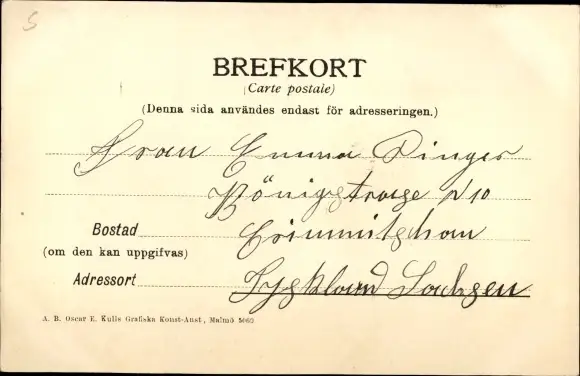 5
BREFKORT
(Carte postale)
(Denna sida användes endast för adresseringen.)
Frau Emma Dinger
Königstrasse N 10
Bostad Crimmitschau
(om den kan uppgifvas)
Adressort Tyskland Sachsen
A. B. Oscar E. Kulls Grafiska Konst-Anst, Malmö